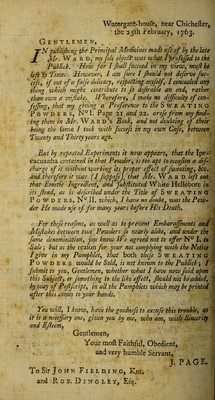 Watergate-house, near Chichester,
the 25th February, 1763.
GENTLEMEN,
IN publishing the Principal Medicines made use of by the late
Mr. WARD, my sole object was what I professed to the
Publick. How far I shall succeed in my views, must be
left to Time. However, I am sure I should not deserve suc-
cess, if out of a false delicacy, respecting myself, I concealed any
thing which might contribute to so desirable an end, rather
than own a mistake. Wherefore, I make no difficulty of con-
fessing, that my giving a Preference to the SWEATING
POWDERS, No I. Page 21 and 22. arose from my find-
ing them in Mr. WARD's Book, and not doubting of their
being the same I took with success in my own Case, between
Twenty and Thirty years ago.
But by repeated Experiments it now appears, that the Ipe-
cacuanha contained in that Powder, is too apt to occasion a dis-
charge of it without working its proper effect of sweating, &c.
and therefore it was (I suppose) that Mr. WARD left out
that Emetic Ingredient, and substituted White Hellebore in
its stead, as is described under the Title of SWEATING
POWDERS, No II. which, I have no doubt, was the Pow-
der He made use of for many years before His Death.
For these reasons, as well as to prevent Embarassments and
Mistakes between two Powders so nearly alike, and under the
same denomination, you know We agreed not to offer No I. to
Sale; but as the reason for your not complying with the Notice
I give in my Pamphlet, that both these SWEATING
POWDERS would be Sold, is not known to the Publick; I
submit to you, Gentlemen, whether what I have now said upon
this Subject, or something to the like effect, should not be added,
by way of Postscript, in all the Pamphlets which may be printed
after this comes to your hands.
You will, I know, have the goodness to excuse this trouble, as
it is a necessary one, given you by me, who am, with Sincerity
and Esteem,
Gentlemen,
Your most Faithful, Obedient,
and very humble Servant,
J. PAGE.
To Sir JOHN FIELDING, Knt.
and ROB. DINGLEY, Esq.